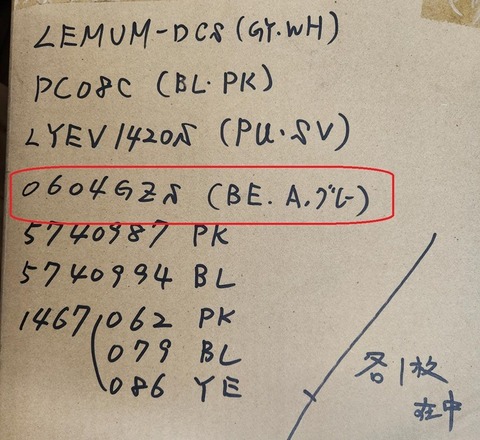 LEMUM-DCS (GY.WH)
PC08C (BL.PK)
LYEV1420S (PU.SV)
0604GZS (BE.A.グレー)
5740987 PK
5740994 BL
1467(062 PK
079 BL
086 YE
各1枚
在中